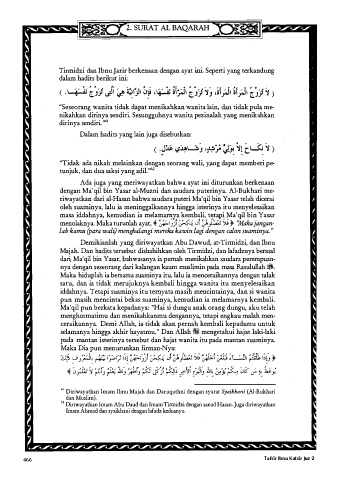 2. SURAT AL BAQARAH
Tirmidzi dan Ibnu Jarir berkenaan dengan ayat ini. Seperti yang terkandung
dalam hadits berikut ini:
( لاَ تُزَوِّجُ الْمَرْأَةُ الْمَرْأَةَ، وَلاَ تُزَوِّجُ الْمَرْأَةُ نَفْسَهَا، فَإِنَّ الزَّانِيَةَ هِيَ الَّتِي تُزَوِّجُ نَفْسَهَا. )
“Seseorang wanita tidak dapat menikahkan wanita lain, dan tidak pula me-
nikahkan dirinya sendiri. Sesungguhnya wanita pezinalah yang menikahkan
dirinya sendiri.”
Dalam hadits yang lain juga disebutkan:
( لاَ نِكَـاحَ إِلاَّ بِوَلِيٍّ مُرْشِدٍ، وَشَـاهِدَيْ عَدْلٍ. )
“Tidak ada nikah melainkan dengan seorang wali, yang dapat memberi pe-
tunjuk, dan dua saksi yang adil.”
Ada juga yang meriwayatkan bahwa ayat ini diturunkan berkenaan
dengan Ma'qil bin Yasar al-Muzni dan saudara puterinya. Al-Bukhari me-
riwayatkan dari al-Hasan bahwa saudara puteri Ma'qil bin Yasar telah dicerai
oleh suaminya, lalu ia meninggalkannya hingga isterinya itu menyelesaikan
masa iddahnya, kemudian ia melamarnya kembali, tetapi Ma'qil bin Yasar
menolaknya. Maka turunlah ayat, ﴿ فَلاَ تَعْضُلُوهُنَّ أَن يَنكِحْنَ أَزْوَاجَهُنَّ ﴾ “Maka jangan-
lah kamu (para wali) menghalangi mereka kawin lagi dengan calon suaminya.”
Demikianlah yang diriwayatkan Abu Dawud, at-Tirmidzi, dan Ibnu
Majah. Dan hadits tersebut dishahihkan oleh Tirmidzi, dan lafadznya berasal
dari Ma'qil bin Yasar, bahwasanya ia pernah menikahkan saudara perempuan-
nya dengan seseorang dari kalangan kaum muslimin pada masa Rasulullah ﷺ.
Maka hiduplah ia bersama suaminya itu, lalu ia menceraikannya dengan talak
satu, dan ia tidak merujuknya kembali hingga wanita itu menyelesaikan
iddahnya. Tetapi suaminya itu ternyata masih mencintainya, dan si wanita
pun masih mencintai bekas suaminya, kemudian ia melamarnya kembali.
Ma'qil pun berkata kepadanya: “Hai si dungu anak orang dungu, aku telah
menghormatimu dan menikahkanmu dengannya, tetapi engkau malah men-
ceraikannya. Demi Allah, ia tidak akan pernah kembali kepadamu untuk
selamanya hingga akhir hayatmu.” Dan Allah mengetahui hajat laki-laki
pada mantan isterinya tersebut dan hajat wanita itu pada mantan suaminya.
Maka Dia pun menurunkan firman-Nya:
﴿ وَإِذَا طَلَّقْتُمُ النِّسَـاءَ فَبَلَغْنَ أَجَلَهُنَّ فَلاَ تَعْضُلُوهُنَّ أَن يَنكِحْنَ أَزْوَاجَهُنَّ إِذَا تَرَاضَوْا بَيْنَهُم بِالْمَعْرُوفِ ذَلِكَ
يُوعَظُ بِهِ مَن كَانَ مِنكُمْ يُؤْمِنُ بِاللهِ وَالْيَوْمِ الْآخِرِ ذَلِكُمْ أَزْكَى لَكُمْ وَأَطْهَرُ وَاللهُ يَعْلَمُ وَأَنتُمْ لاَ تَعْلَمُونَ ﴾
Diriwayatkan Imam Ibnu Majah dan Daruquthni dengan syarat Syaikhani (Al-Bukhari
dan Muslim).
Diriwayatkan Imam Abu Daud dan Imam Tirmidzi dengan sanad Hasan. Juga diriwayatkan
Imam Ahmad dan syaikhani dengan lafadz keduanya.
466
Tafsir Ibnu Katsir Juz 2